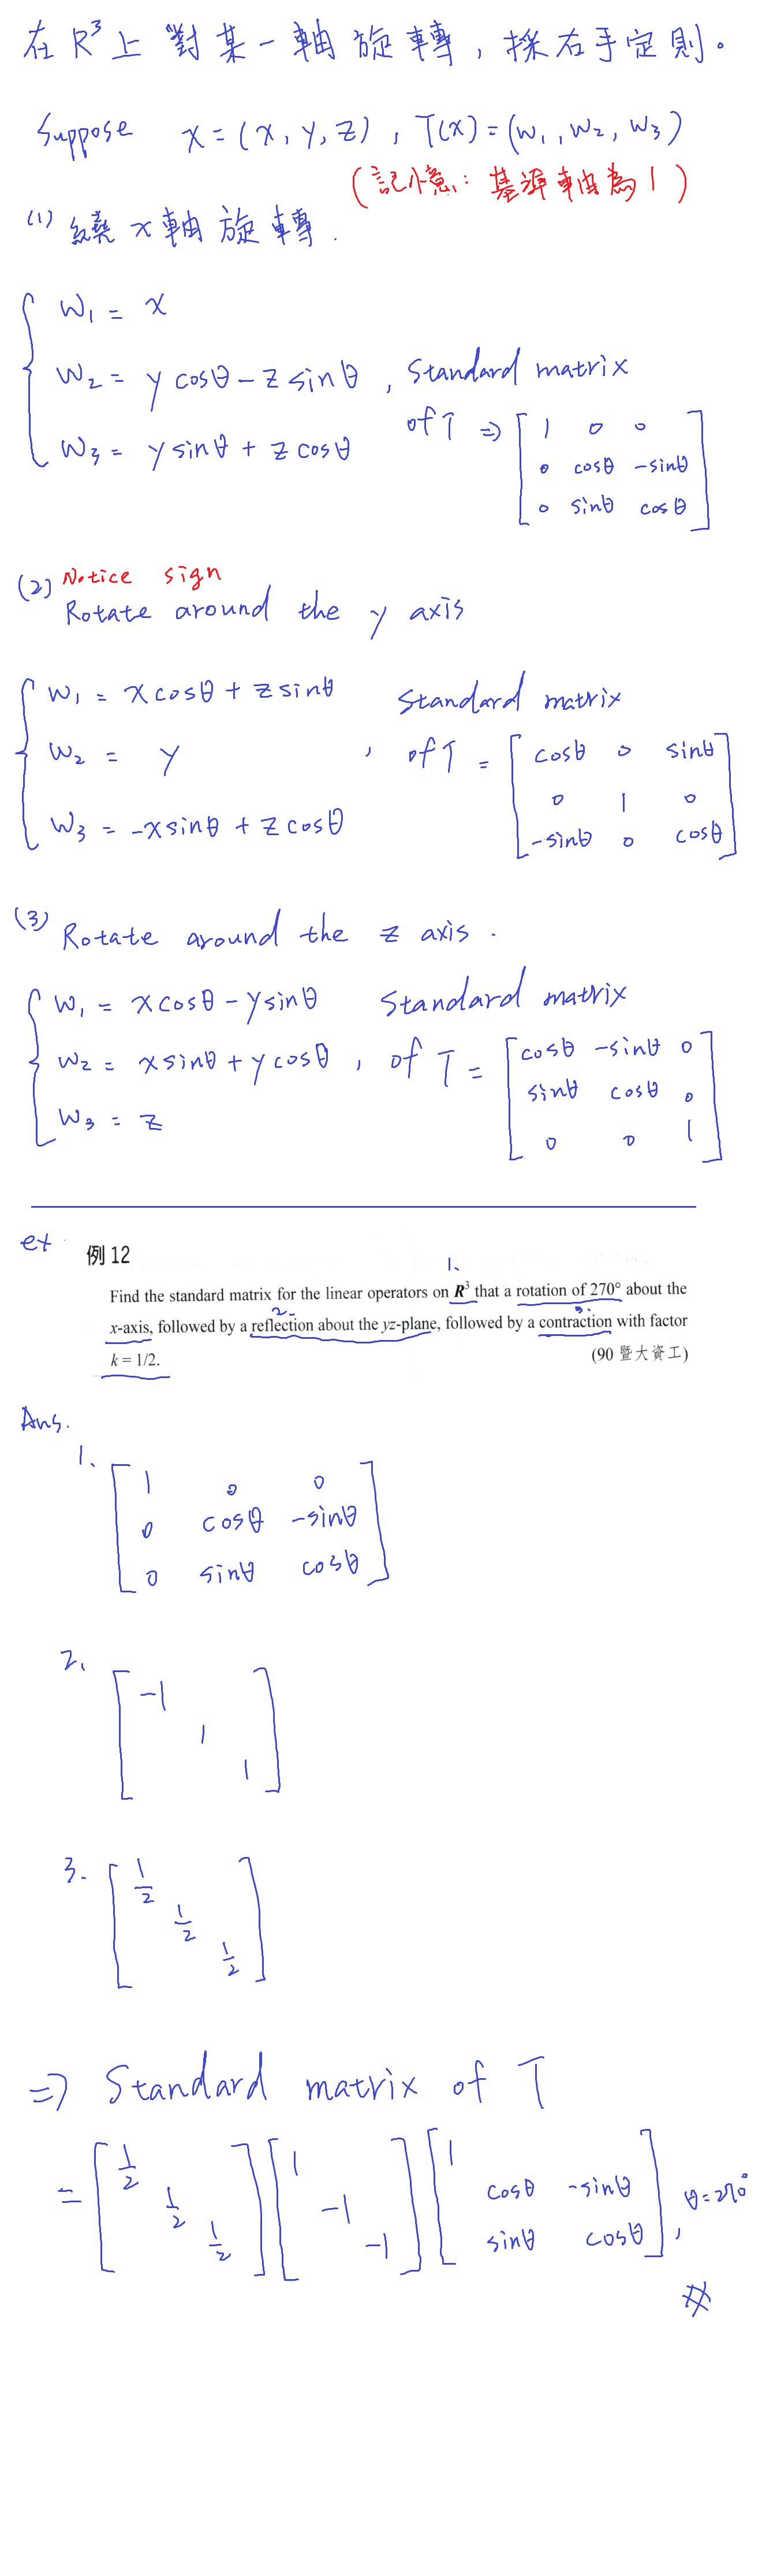 在 R³ 上 對某一軸旋轉，採右手定則。
Suppose x = (x, y, z) , T(x) = (w₁, w₂, w₃)
(記憶: 基準軸為 1)
(1) 繞 x 軸旋轉.
w₁ = x
w₂ = y cosθ - z sinθ , Standard matrix
w₃ = y sinθ + z cosθ
of T ⇒
1 0 0
0 cosθ -sinθ
0 sinθ cosθ
(2) Notice sign
Rotate around the y axis
w₁ = x cosθ + z sinθ Standard matrix
w₂ = y , of T =
w₃ = -x sinθ + z cosθ
cosθ 0 sinθ
0 1 0
-sinθ 0 cosθ
(3) Rotate around the z axis.
w₁ = x cosθ - y sinθ Standard matrix
w₂ = x sinθ + y cosθ , of T =
w₃ = z
cosθ -sinθ 0
sinθ cosθ 0
0 0 1
ex 例 12
1.
Find the standard matrix for the linear operators on R³ that a rotation of 270° about the
2. 3.
x-axis, followed by a reflection about the yz-plane, followed by a contraction with factor
k = 1/2. (90 暨大資工)
Ans.
1.
1 0 0
0 cosθ -sinθ
0 sinθ cosθ
2.
-1
1
1
3.
1/2
1/2
1/2
⇒ Standard matrix of T
=
1/2
1/2
1/2
1
-1
-1
1
cosθ -sinθ
sinθ cosθ
, θ = 270°
#